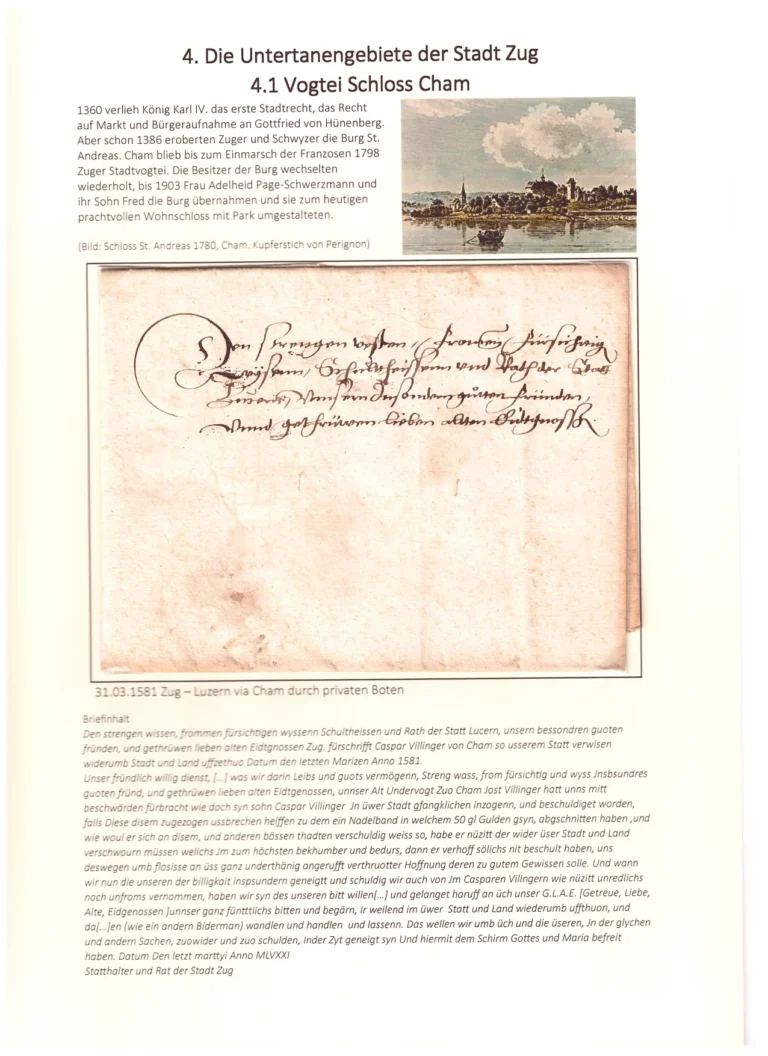 4. Die Untertanengebiete der Stadt Zug
4.1 Vogtei Schloss Cham
1360 verlieh König Karl IV. das erste Stadtrecht, das Recht
auf Markt und Bürgeraufnahme an Gottfried von Hünenberg.
Aber schon 1386 eroberten Zuger und Schwyzer die Burg St.
Andreas. Cham blieb bis zum Einmarsch der Franzosen 1798
Zuger Stadtvogtei. Die Besitzer der Burg wechselten
wiederholt, bis 1903 Frau Adelheid Page-Schwerzmann und
ihr Sohn Fred die Burg übernahmen und sie zum heutigen
prachtvollen Wohnschloss mit Park umgestalteten.
(Bild: Schloss St. Andreas 1780, Cham. Kupferstich von Perignon)
Den strengen vesten, fromen, fürsichtig
Wysenn, Schultheissenn vnd Rath der Statt
Lucern, Vnsern Insondern guten fründen,
Vnnd gethrüwen lieben alten Eidtgnossen.
31.03.1581 Zug – Luzern via Cham durch privaten Boten
Briefinhalt
Den strengen wissen, frommen fürsichtigen wyssenn Schultheissen und Rath der Statt Lucern, unsern bessondren guoten
fründen, und gethrüwen lieben alten Eidtgnossen Zug. fürschrifft Caspar Villinger von Cham so usserem Statt verwisen
widerumb Stadt und Land uffzethuo Datum den letzten Marizen Anno 1581.
Unser fründlich willig dienst, [...] was wir darin Leibs und guots vermögenn, Streng wass, from fürsichtig und wyss Jnsbundres
guoten fründ, und gethrüwen lieben alten Eidtgenossen, unnser Alt Undervogt Zuo Cham Jost Villinger hatt unns mitt
beschwärden fürbracht wie doch syn sohn Caspar Villinger Jn üwer Stadt gfanglichen inzogenn, und beschuldiget worden,
falls Diese disem zugezogen ussbrechen helffen zu dem ein Nadelband in welchem 50 gl Gulden gsyn, abgschnitten haben ,und
wie woul er sich an disem, und anderen bössen thadten verschuldig weiss so, habe er nüzitt der wider üser Stadt und Land
verschwourn müssen welichs Jm zum höchsten bekhumber und bedurs, dann er verhoff sölichs nit beschult haben, uns
deswegen umb flosisse an üss ganz underthänig angerufft verthruotter Hoffnung deren zu gutem Gewissen solle. Und wann
wir nun die unseren der billigkait inspsundern geneigtt und schuldig wir auch von Jm Casparen Vilingern wie nüzitt unredlichs
noch unfroms vernommen, haben wir syn des unseren bitt willen[...] und gelanget haruff an üch unser G.L.A.E. [Getreue, Liebe,
Alte, Eidgenossen ]unnser ganz fünttlichs bitten und begärn, Ir wellend im üwer Statt und Land wiederumb uffthuon, und
da[...]en (wie ein andern Biderman) wandlen und handlen und lassenn. Das wellen wir umb üch und die üseren, Jn der glychen
und andern Sachen, zuowider und zuo schulden, Inder Zyt geneigt syn Und hiermit dem Schirm Gottes und Maria befreit
haben. Datum Den letzt marttyi Anno MLVXXI
Statthalter und Rat der Stadt Zug